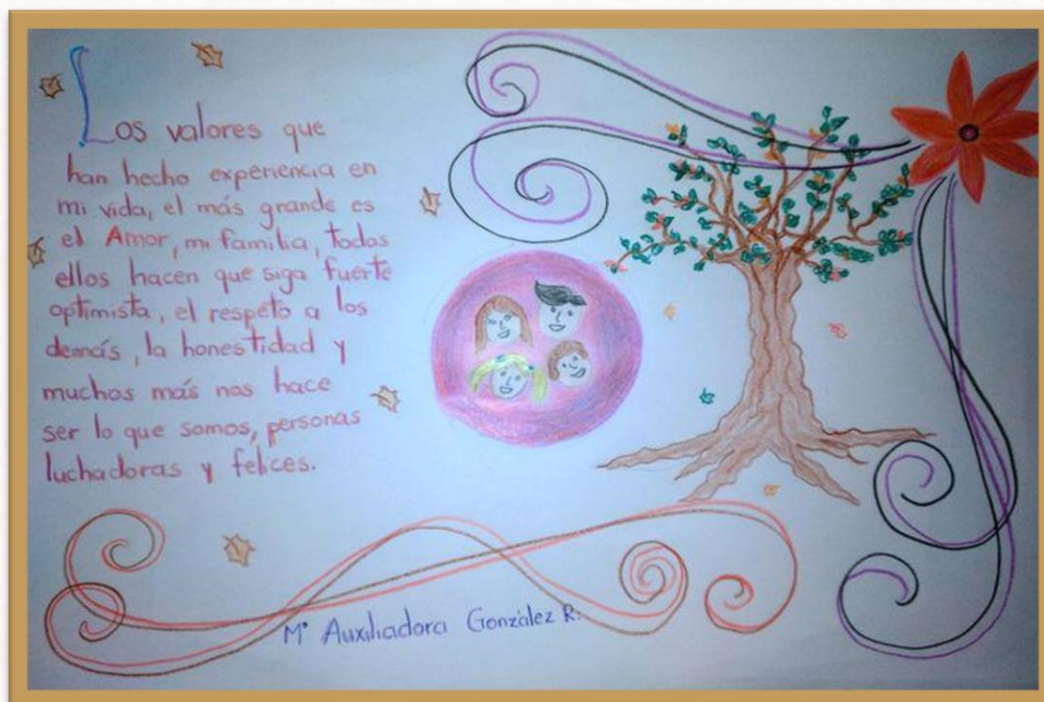 Los valores que
han hecho experiencia en
mi vida, el más grande es
el Amor, mi familia, todos
ellos hacen que siga fuerte
optimista, el respeto a los
demás, la honestidad y
muchos más nos hace
ser lo que somos, personas
luchadoras y felices.
Mª Auxiliadora González R.